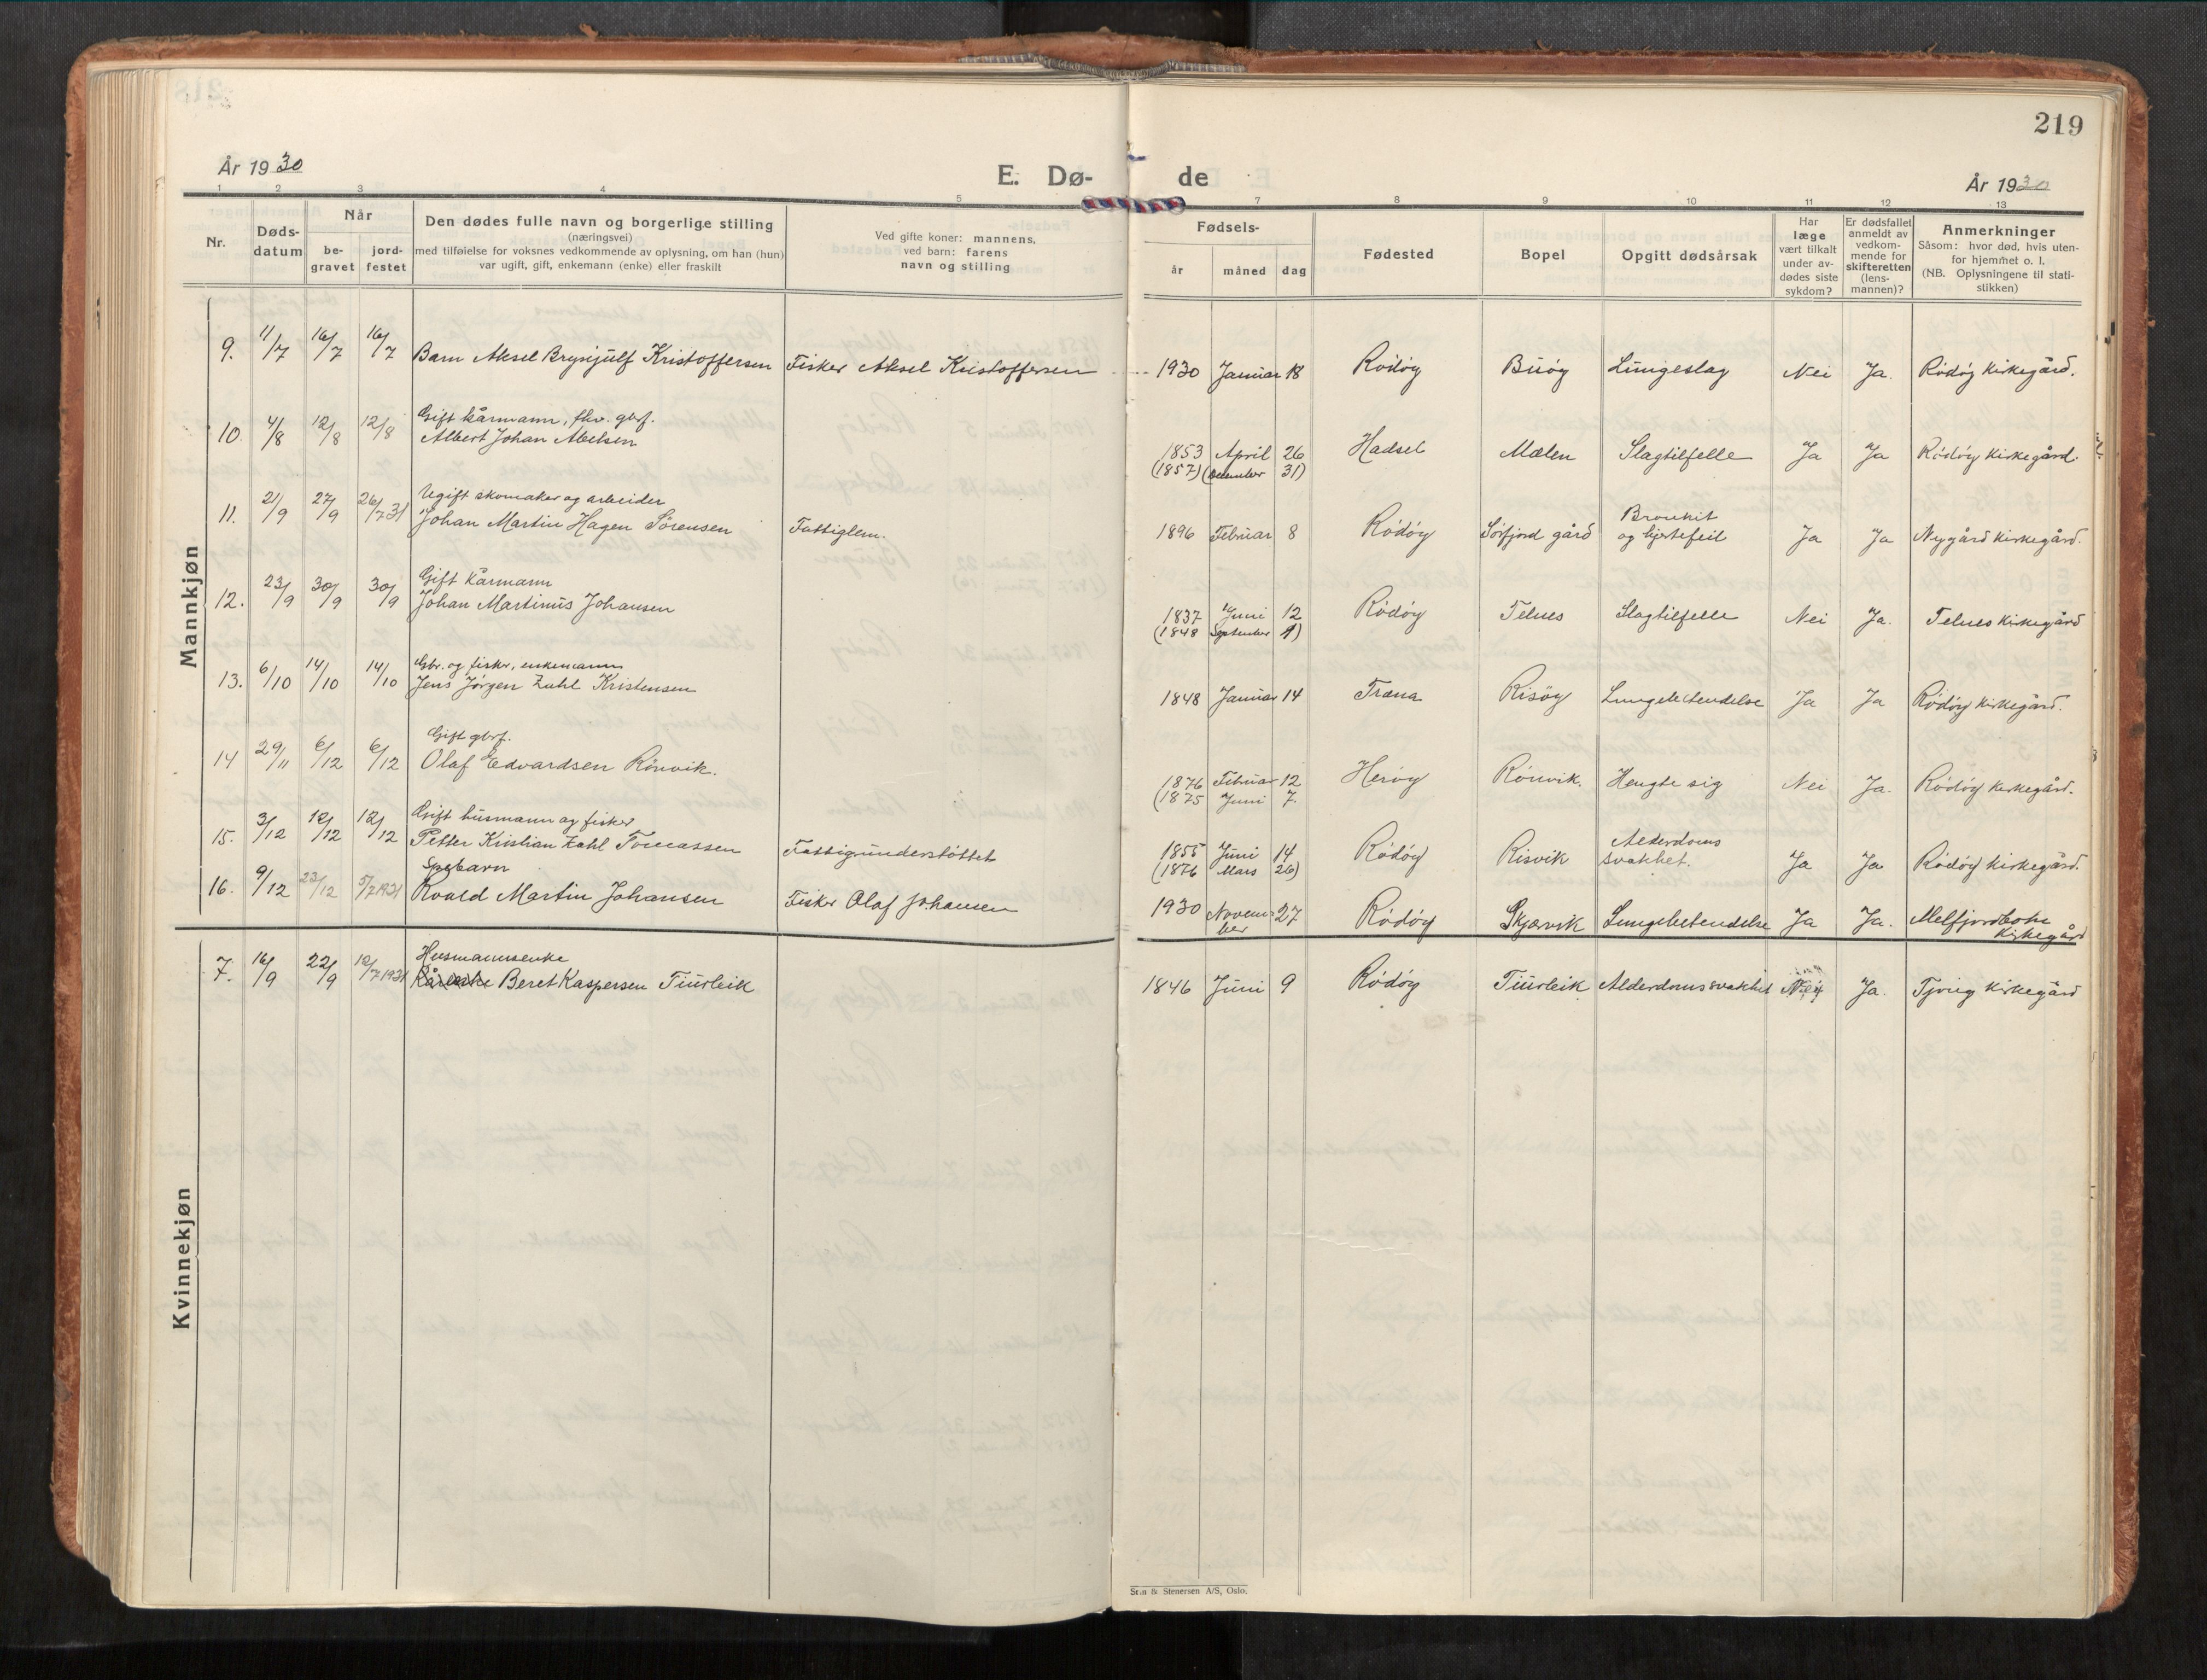 219
År 1930
E. Dø-
de
År 1930
1 2 3 4 5 7 8 9 10 11 12 13
Nr.
Døds-
datum
Når
be-
gravet
jord-
festet
Den dødes fulle navn og borgerlige stilling
(næringsvei)
med tilføielse for voksnes vedkommende av oplysning, om han (hun)
var ugift, gift, enkemann (enke) eller fraskilt
Ved gifte koner: mannens,
ved barn: farens
navn og stilling
Fødsels-
år
måned
dag
Fødested
Bopel
Opgitt dødsårsak
Har
læge
vært tilkalt
under av-
dødes siste
sykdom?
Er dødsfallet
anmeldt av
vedkom-
mende for
skifteretten
(lens-
mannen)?
Anmerkninger
Såsom: hvor død, hvis uten-
for hjemmet o. l.
(NB. Oplysningene til stati-
stikken)
Mannkjøn
9. 11/7 16/7 16/7 Barn Aksel Brynjulf Kristoffersen Fisker Aksel Kristoffersen 1930 Januar 18 Rödöy Buöy Lungeslag Nei Ja. Rödöy Kirkegård.
Gift kårmann, fhv. gbrf.
10. 4/8 12/8 12/8 Albert Johan Abelsen 1853 April 26 Hadsel Mælen Slagtilfelle Ja Ja Rödöy Kirkegård.
(1857) (December 31)
Ugift skomaker og arbeider
11. 21/9 27/9 26/7 31 Johan Martin Hagen Sörensen Fattiglem. 1896 Februar 8 Rödöy Sörfjord gård Bronkit
og hjertefeil Ja Ja Nygård kirkegård.
Gift Kårmann
12. 23/9 30/9 30/9 Johan Martinus Johansen 1837 Juni 12 Rödöy Telnes Slagtilfelle Nei Ja. Telnes Kirkegård
(1848 September 9)
Gbr. og fisker, enkemann
13. 6/10 14/10 14/10 Jens Jörgen Zahl Kristensen 1848 Januar 14 Træna Risöy Lungebetendelse Ja Ja Rödöy Kirkegård.
Gift gbrf.
14 29/11 6/12 6/12 Olaf Edvardsen Rönvik. 1876 Februar 12 Heröy Rönvik. Hengte sig Nei Ja. Rödöy Kirkegård.
(1875 Juni 7.
Gift husmann og fisker
15. 3/12 12/12 12/12 Petter Kristian Zahl Tomassen Fattigunderstöttet 1855 Juni 14 Rödöy Risvik Alderdoms
svakhet. Ja Ja Rödöy kirkegård.
(1876 Mars 26)
Spebarn
16. 9/12 23/12 5/7 1931 Roald Martin Johansen Fisker Olaf Johansen 1930 Novem-
ber 27 Rödöy Skjærvik Lungebetendelse Ja Ja. Melfjordbotn
Kirkegård
Kvinnekjøn
Husmannsenke
7. 16/9 22/9 12/7 1931 Kårenke Beret Kaspersen Tiurleik 1846 Juni 9 Rödöy Tiurleik Alderdomssvakhet Nei Ja. Tjong Kirkegård
Sten & Stenersen A/S, Oslo.